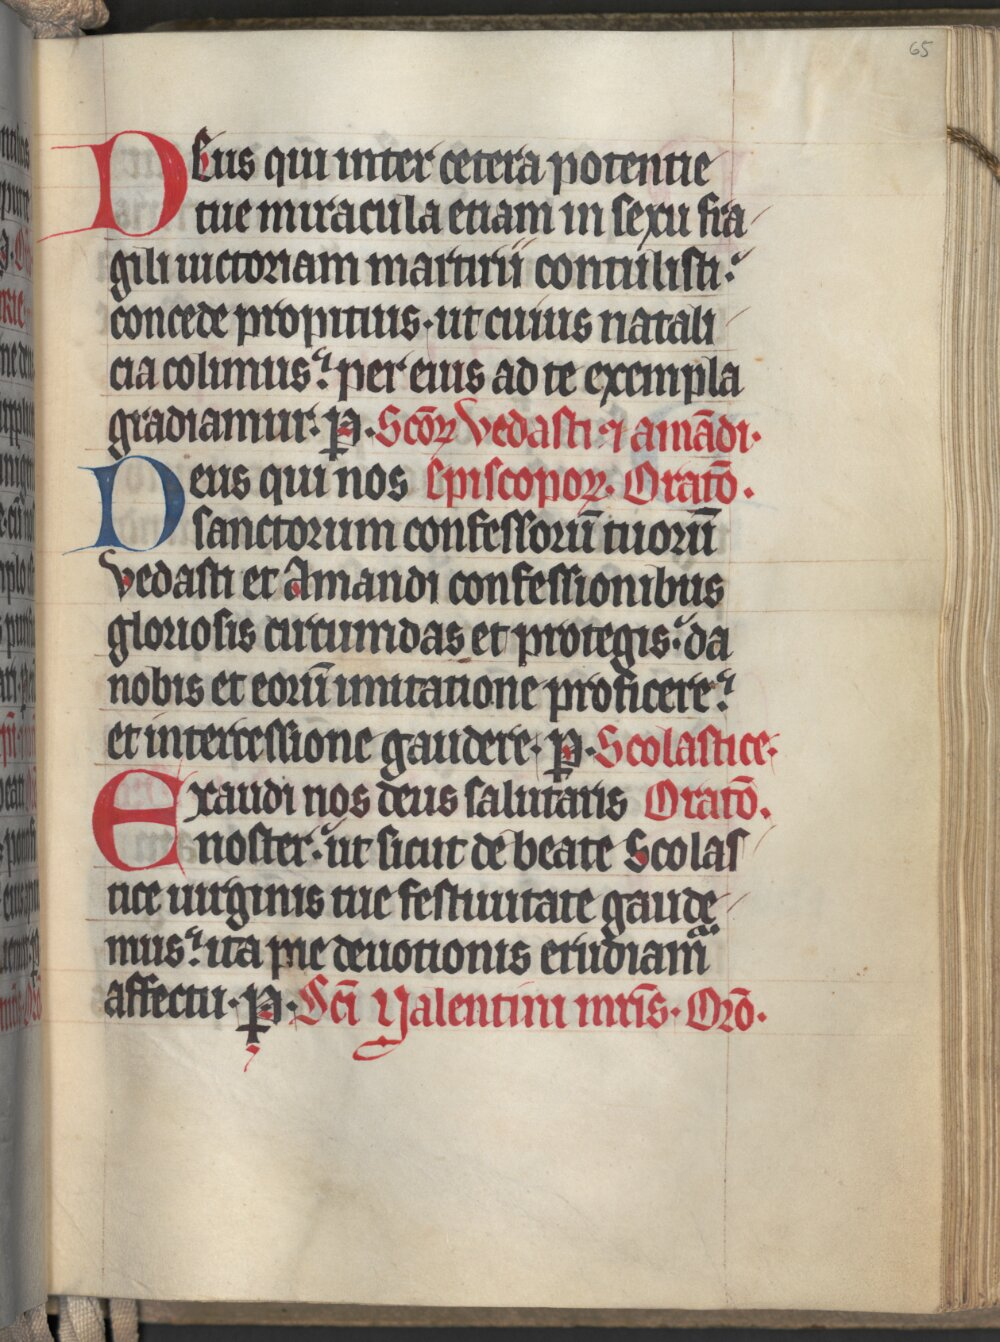 65
DEus qui inter cetera potentie
tue miracula etiam in sexu fra
gili uictoriam martirii contulisti.
concede propitius. ut cuius natali
cia colimus. per eius ad te exempla
gradiamur. P. Scõꝝ Vedasti ⁊ amãdi.
Deus qui nos Episcopoꝝ. Oratõ.
sanctorum confessorũ tuorũ
Vedasti et Amandi confessionibus
gloriosis circumdas et protegis. da
nobis et eorũ imitatione proficere.
et intercessione gaudere. P. Scolastice.
Exaudi nos deus salutaris Oratõ.
noster. ut sicut de beate Scolas
tice uirginis tue festiuitate gaude
mus. ita pie deuotionis erudiam̃
affectu. P. Sc̃i Valentini mr̃is. Orõ.